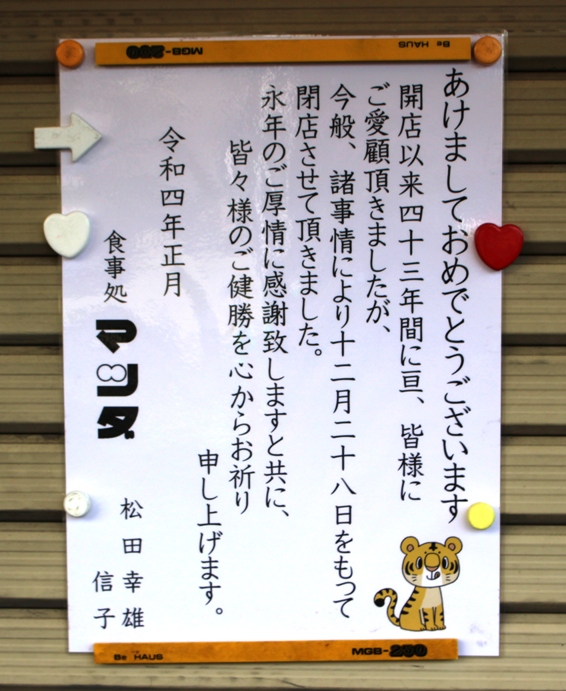 あけましておめでとうございます
開店以来四十三年間に亘、皆様に
ご愛顧頂きましたが、
今般、諸事情により十二月二十八日をもって
閉店させて頂きました。
永年のご厚情に感謝致しますと共に、
皆々様のご健勝を心からお祈り
申し上げます。
令和四年正月
食事処 マツダ
松田幸雄
信子
MGB-250
Be HAUS
Be HAUS
MGB-250